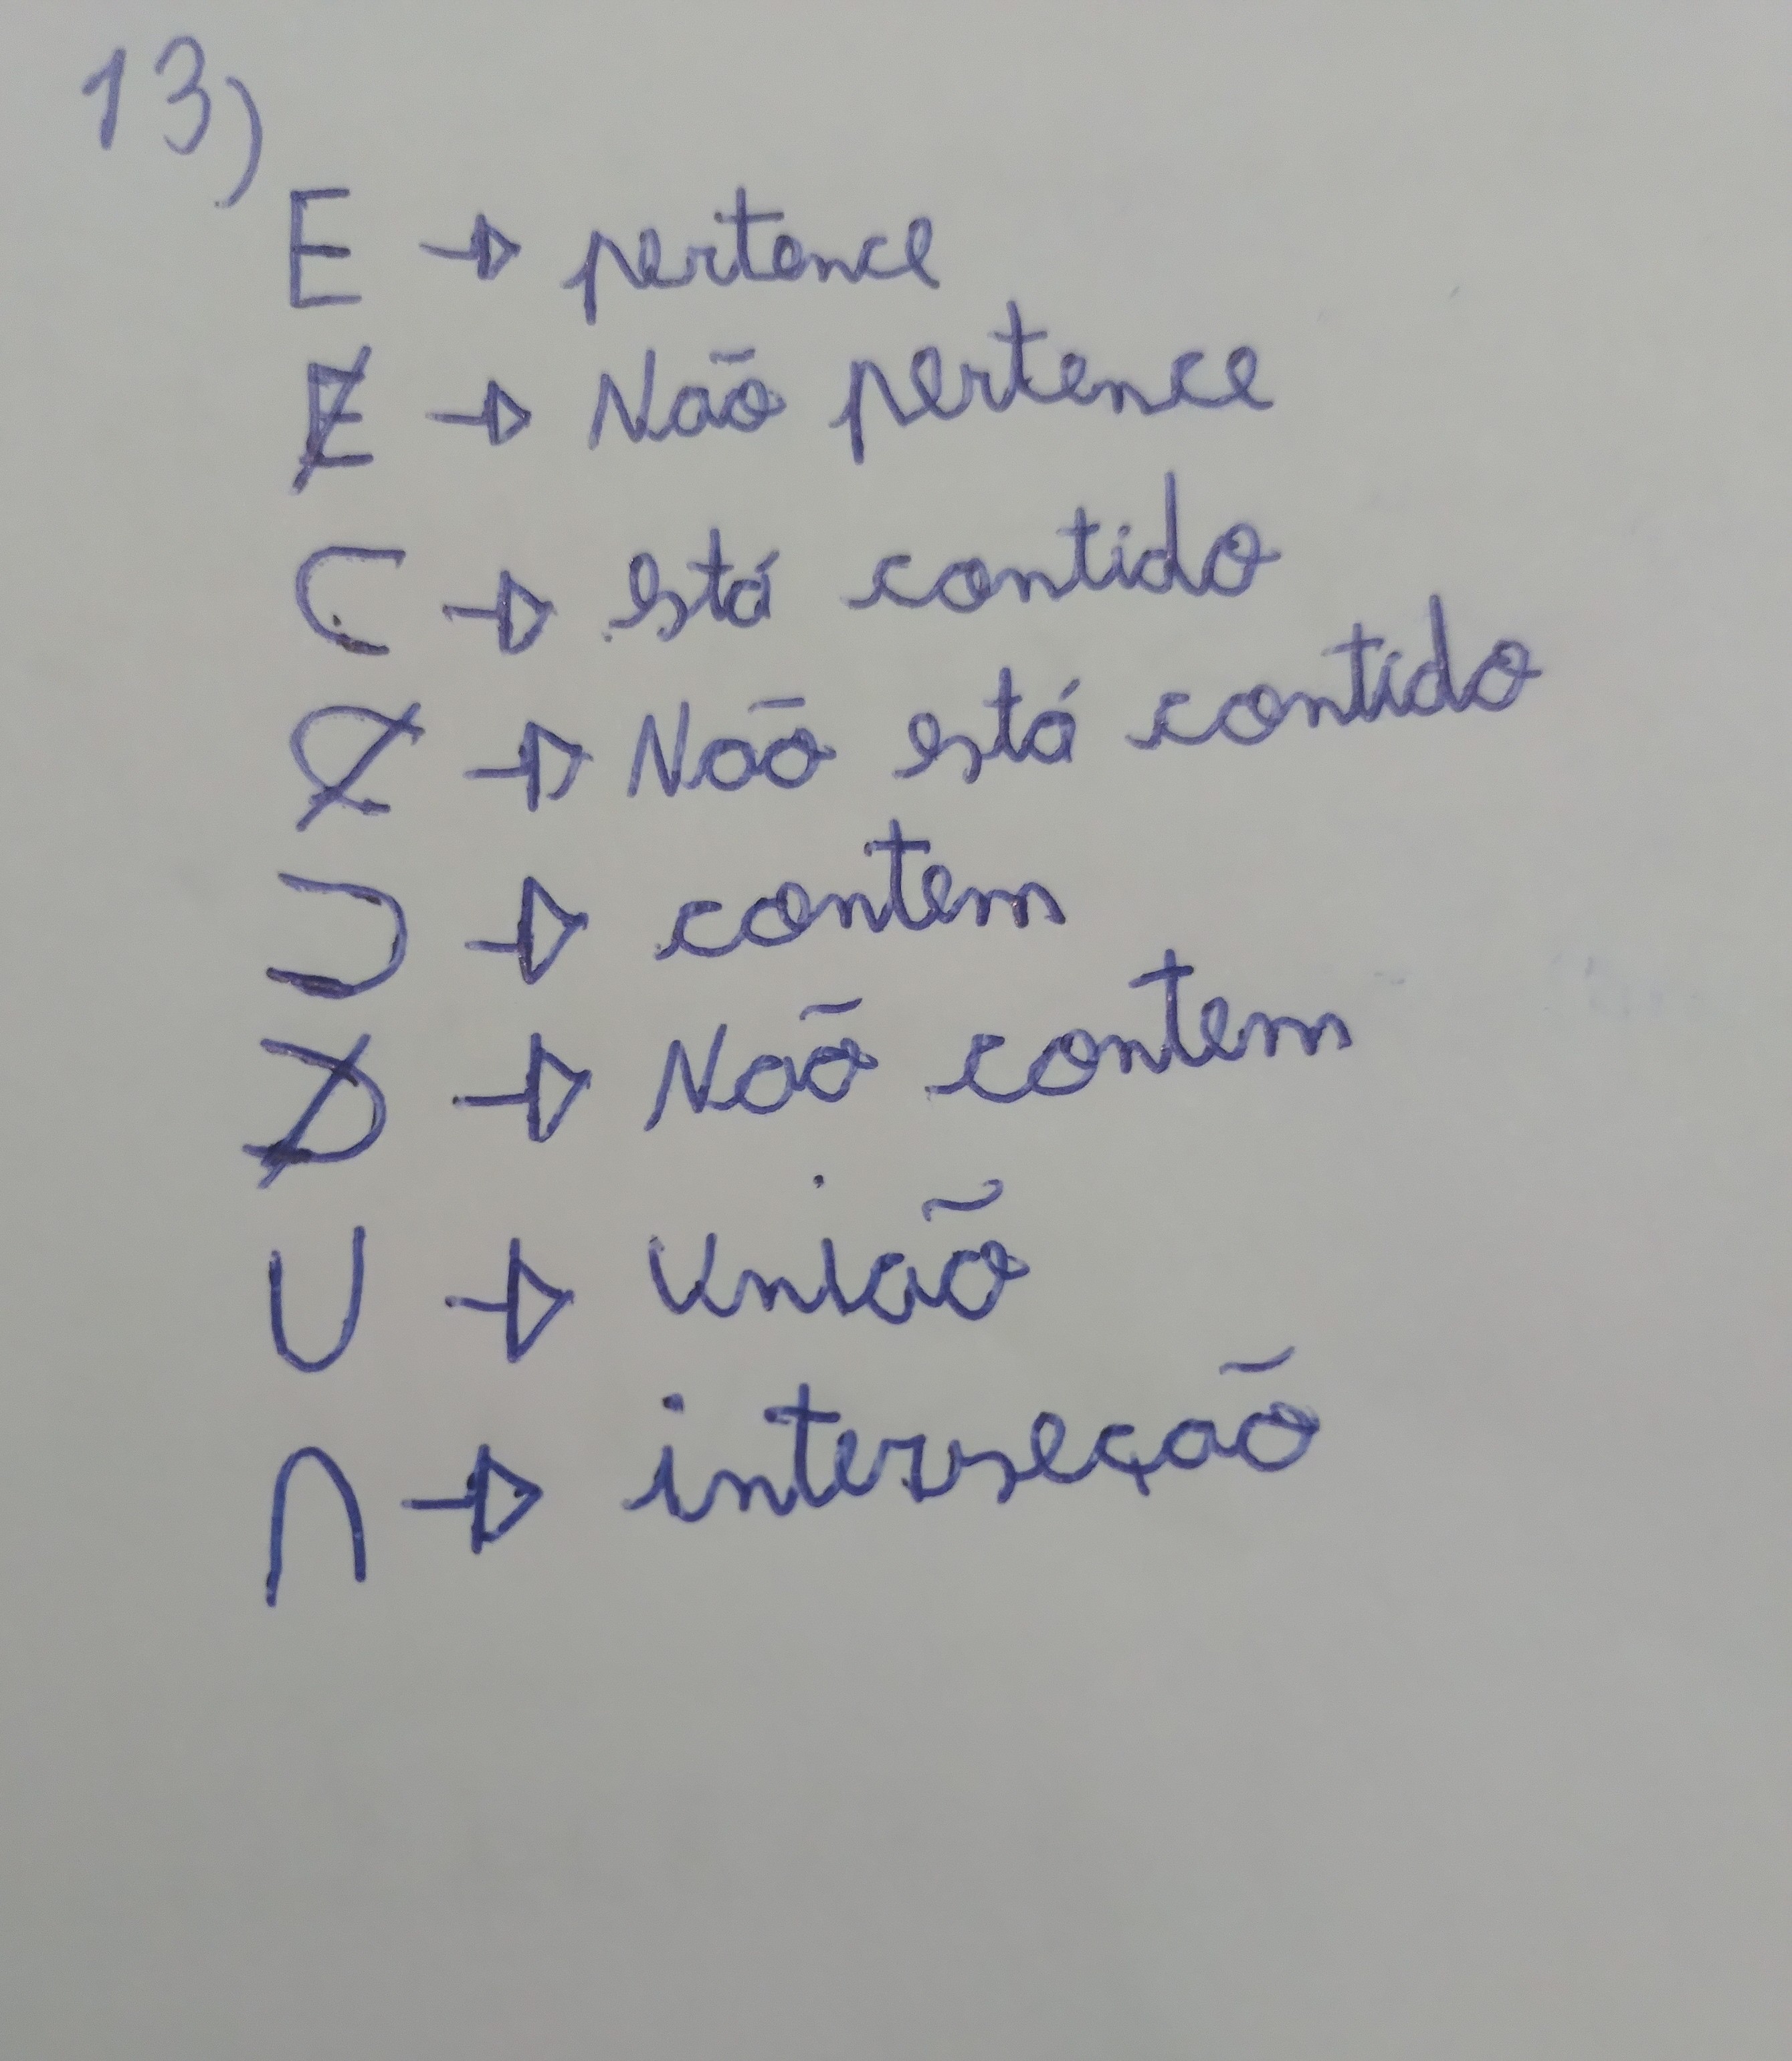 13)
E → pertence
E̸ → Não pertence
⊂ → está contido
⊄ → Não está contido
⊃ → contem
⊅ → Não contem
U → União
∩ → interseção